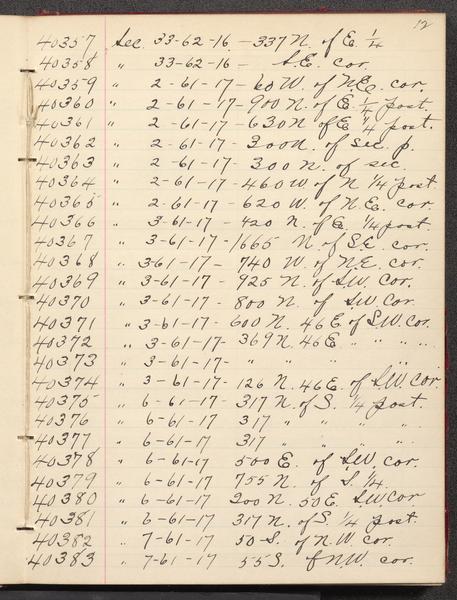 12
40357 Sec. 33-62-16. - 337 N. of E. 1/4
40358 " 33-62-16 - S.E. cor.
40359 " 2-61-17 - 60 W. of N.E. cor.
40360 " 2-61-17 - 900 N. of E. 1/4 post.
40361 " 2-61-17 - 630 N of E 1/4 post.
40362 " 2-61-17 - 300 N. of Sec. p.
40363 " 2-61-17 - 300 N. of sec.
40364 " 2-61-17 - 460 W. of N 1/4 post
40365 " 2-61-17 - 620 W. of N.E. cor.
40366 " 3-61-17 - 420 N. of E. 1/4 post.
40367 " 3-61-17 - 1665 N. of S.E. cor.
40368 " 3-61-17 - 740 W. of N.E. cor.
40369 " 3-61-17 - 925 N. of S.W. Cor.
40370 " 3-61-17 - 800 N. of S.W. Cor.
40371 " 3-61-17 - 600 N. 46 E. of S.W. Cor.
40372 " 3-61-17 - 369 N. 46 E. " " "
40373 " 3-61-17 - " " " "
40374 " 3-61-17 - 126 N. 46 E. of S.W. Cor.
40375 " 6-61-17 - 317 N. of S. 1/4 post.
40376 " 6-61-17 317 " " " "
40377 " 6-61-17 317 " " "
40378 " 6-61-17 500 E. of S.W. cor.
40379 " 6-61-17 755 N. of S. 1/4.
40380 " 6-61-17 200 N. 50 E. S.W. Cor
40381 " 6-61-17 317 N. of S 1/4 post.
40382 " 7-61-17 50 S. of N.W. cor.
40383 " 7-61-17 55 S. of N.W. cor.